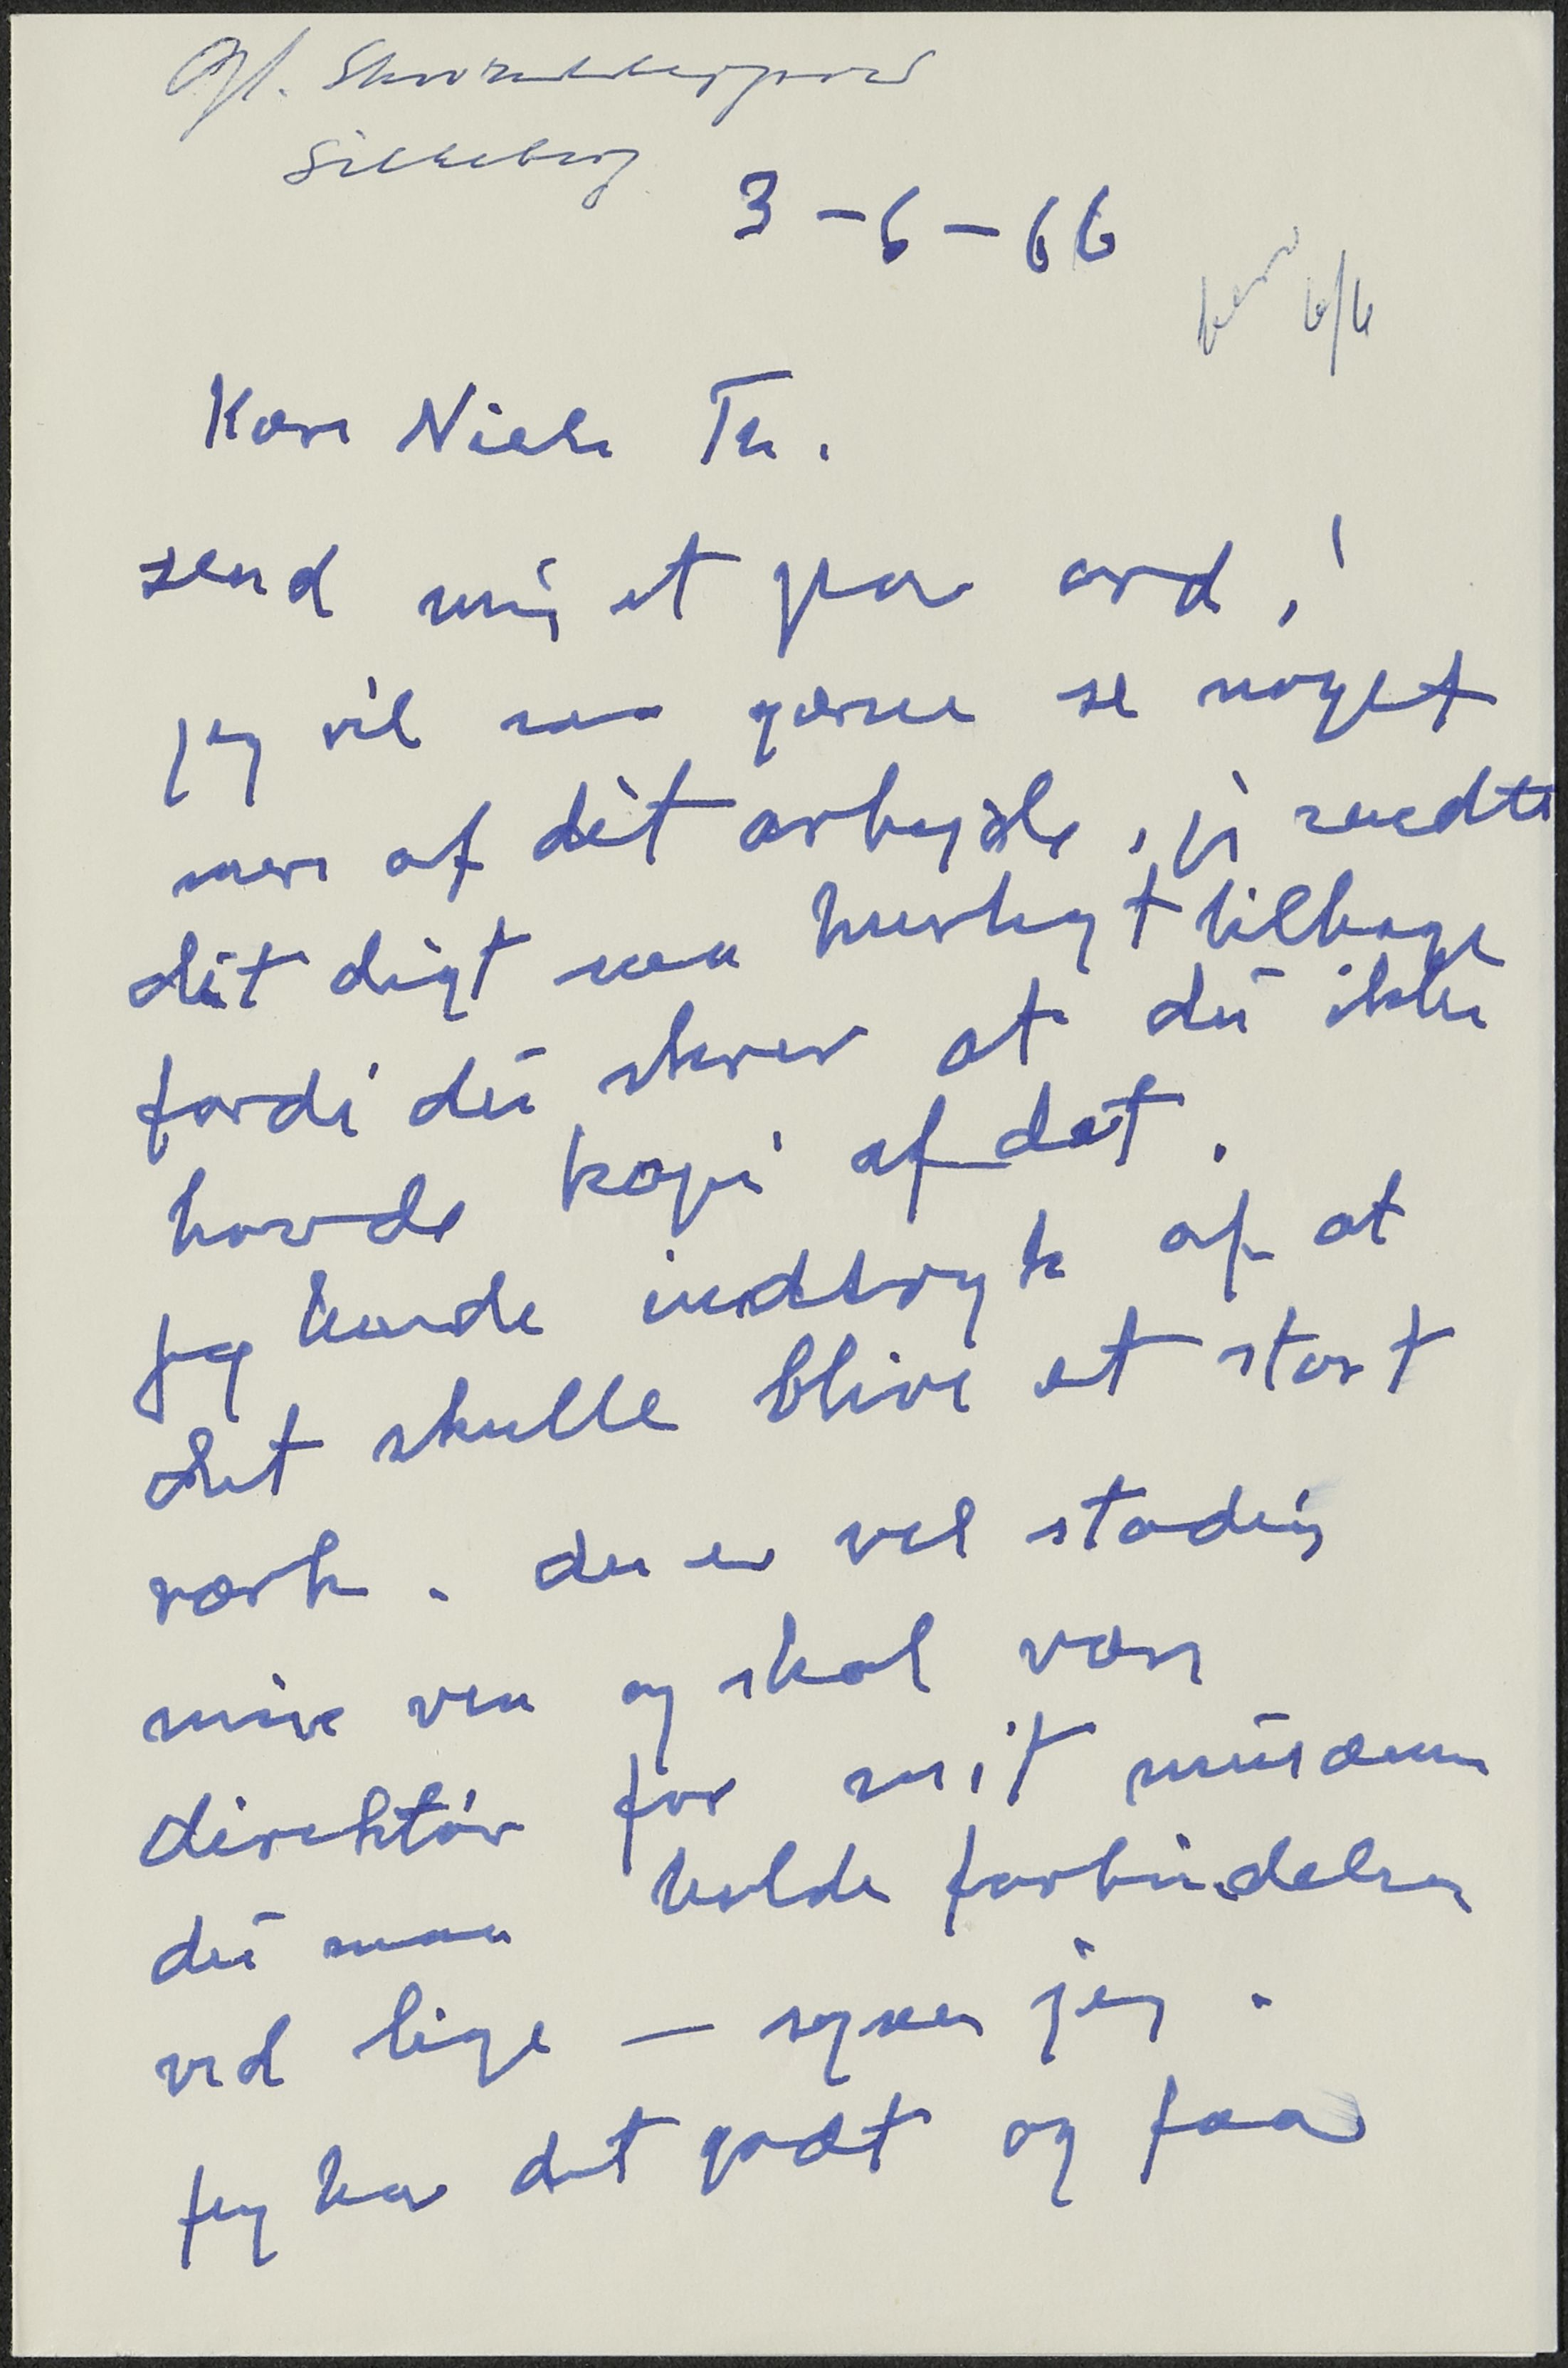 Gl. Skovridergaard
Silkeborg
3-6-66
6/6
Kære Niels Th.
send mig et par ord!
jeg vil saa gærne se noget
mere af dit arbejde, jeg sendte
dit digt saa hurtigt tilbage
fordi du skrev at du ikke
havde kopi af det.
jeg havde indtryk af at
det skulle blive et stort
værk. du er vel stadig
min ven og skal være
direktør for mit musæum
du maa holde forbindelsen
ved lige — synes jeg.
jeg har det godt og faar